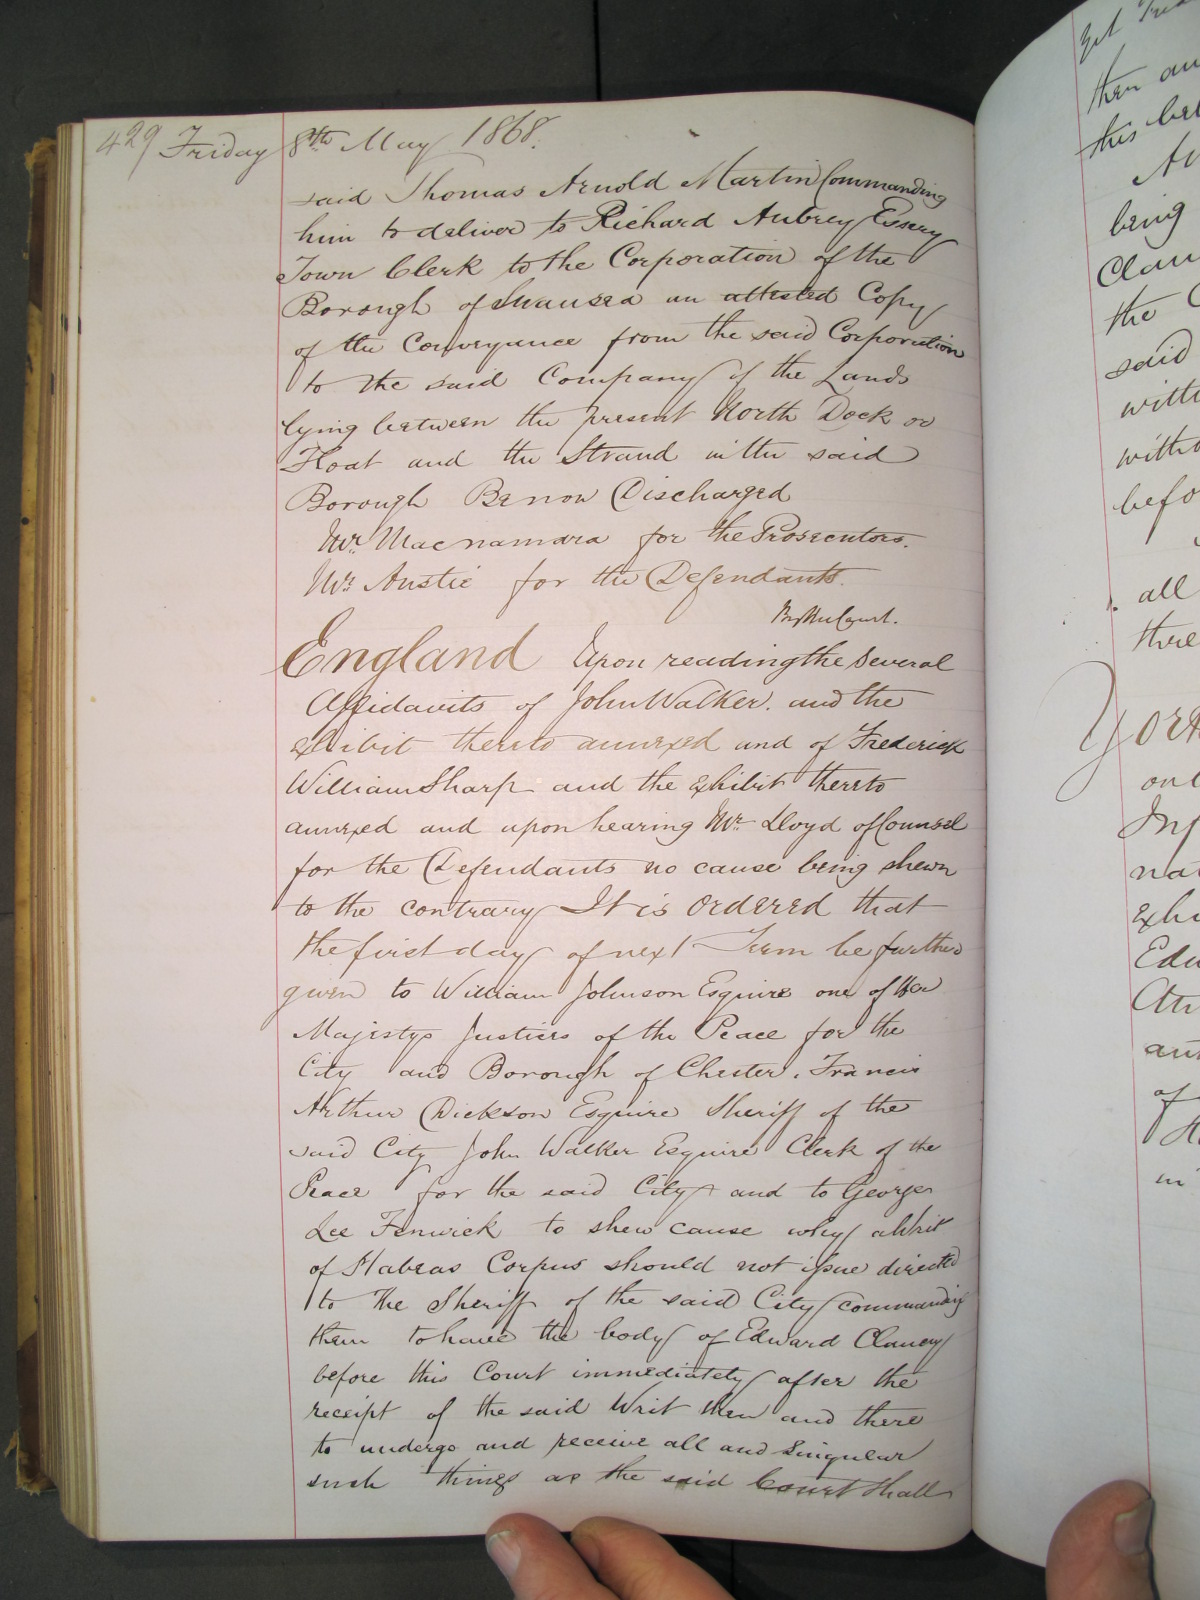 429 Friday 8th May 1868.
said Thomas Arnold Martin Commanding
him to deliver to Richard Aubrey Essery
Town Clerk to the Corporation of the
Borough of Swansea an attested Copy
of the Conveyance from the said Corporation
to the said Company of the Lands
lying between the present North Dock or
Float and the Strand in the said
Borough Be now Discharged
Mr. Macnamara for the Prosecutors.
Mr. Austie for the Defendants.
By the Court.
England Upon reading the several
Affidavits of John Walker. and the
exhibit thereto annexed and of Frederick
William Sharp and the exhibit thereto
annexed and upon hearing Mr. Lloyd of Counsel
for the Defendants no cause being shewn
to the contrary It is ordered that
the first day of next Term be further
given to William Johnson Esquire one of Her
Majestys Justices of the Peace for the
City and Borough of Chester, Francis
Arthur Dickson Esquire Sheriff of the
said City John Walker Esquire Clerk of the
Peace for the said City and to George
Lee Fenwick to shew cause why a Writ
of Habeas Corpus should not issue directed
to the Sheriff of the said City commanding
them to have the body of Edward Clancy
before this Court immediately after the
receipt of the said Writ then and there
to undergo and receive all and Singular
such things as the said Court shall
then
this
being
Clan
the
said
with
witho
befo
all
there
York